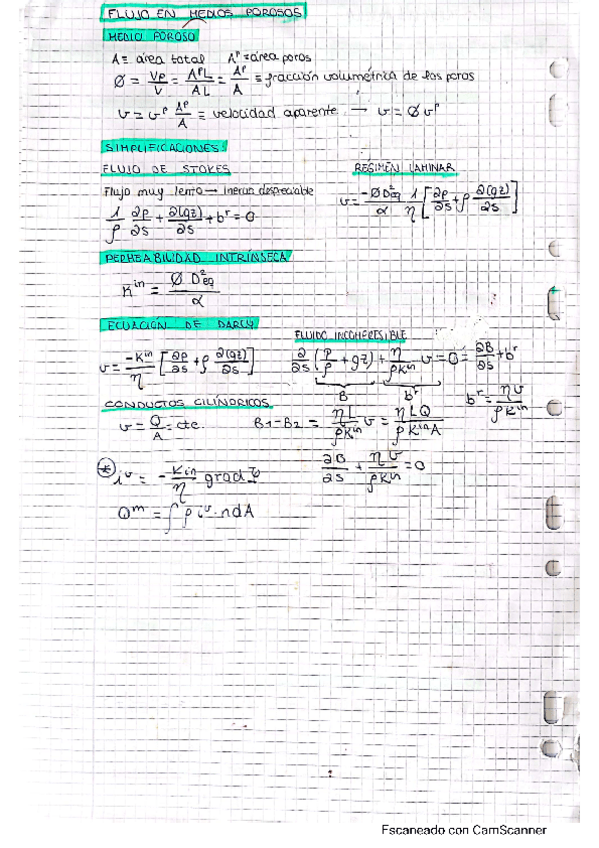 FLUJO EN MEDIOS POROSOS
MEDIO POROSO
A ≡ área total Aᴾ ≡ área poros
Ø = Vp/V = AᴾL/AL = Aᴾ/A ≡ fracción volumétrica de los poros
v = vᴾ Aᴾ/A ≡ velocidad aparente → v = Ø vᴾ
SIMPLIFICACIONES:
FLUJO DE STOKES
Flujo muy lento → inercia despreciable
1/ρ ∂p/∂s + ∂(gz)/∂s + bʳ = 0
RÉGIMEN LAMINAR
v = -Ø D²eq/α 1/η [∂p/∂s + ρ ∂(gz)/∂s]
PERMEABILIDAD INTRÍNSECA
Kⁱⁿ = Ø D²eq/α
ECUACIÓN DE DARCY
v = -Kⁱⁿ/η [∂p/∂s + ρ ∂(gz)/∂s]
FLUIDO INCOMPRESIBLE
∂/∂s (p/ρ + gz) + η/ρKⁱⁿ v = 0 = ∂B/∂s + bʳ
B bʳ
bʳ = ηv/ρKⁱⁿ
CONDUCTOS CILÍNDRICOS
v = Q/A = cte B1-B2 = ηL/ρKⁱⁿ v = ηLQ/ρKⁱⁿA
∂B/∂s + ηv/ρKⁱⁿ = 0
* iᵛ = - Kin/η grad
Qᵐ = ∫ρ iᵛ·n dA
Escaneado con CamScanner